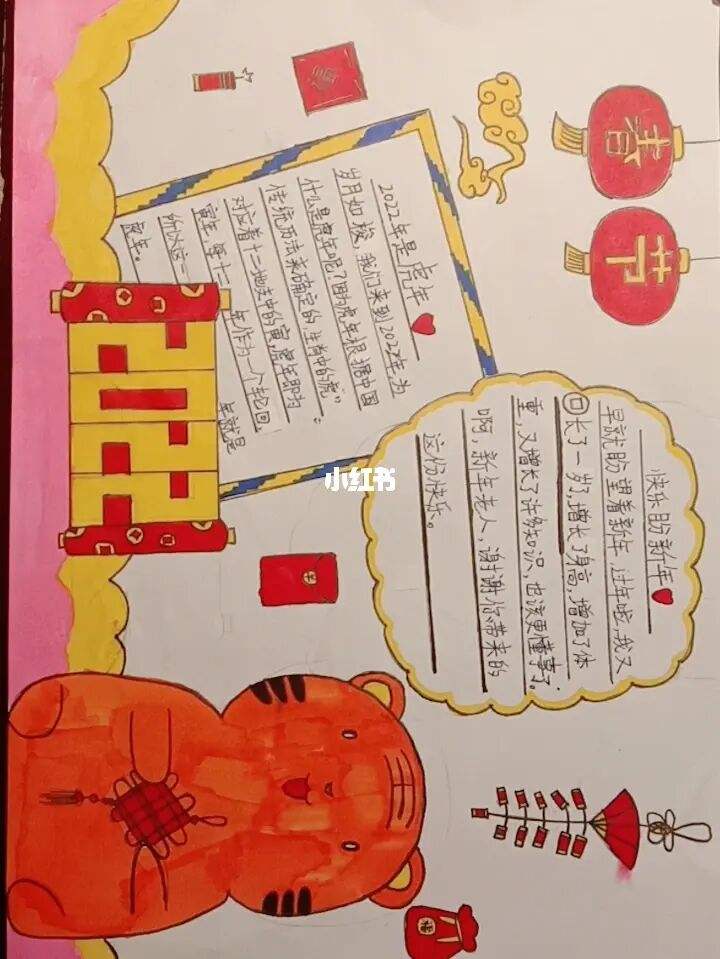 春节
2022年是虎年
岁月如梭,我们来到2022年为
什么是虎年呢?因为虎年根据中国
传统历法来确定的,生肖中的"虎"
对应着十二地支中的寅,虎年即为
寅年,每十二年作为一个轮回
所以这一年就是
虎年。
快乐的新年
早就盼望着新年,过年啦,我又
长了一岁,增长了身高,增加了体
重,又增长了许多知识,也该更懂事了。
啊,新年老人,谢谢你带来的
这份快乐。
2022
福
小红书